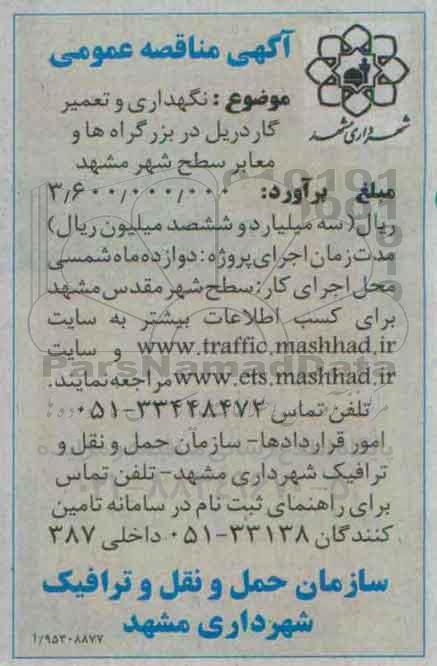 آگهی مناقصه عمومی
شهرداری مشهد
موضوع : نگهداری و تعمیر
گاردریل در بزرگراه ها و
معابر سطح شهر مشهد
مبلغ برآورد: ۳/۶۰۰/۰۰۰/۰۰۰
ریال( سه میلیارد و ششصد میلیون ریال)
مدت زمان اجرای پروژه : دوازده ماه شمسی
محل اجرای کار: سطح شهر مقدس مشهد
برای کسب اطلاعات بیشتر به سایت
www.traffic.mashhad.ir و سایت
www.ets.mashhad.ir مراجعه نمایند.
تلفن تماس ۳۳۴۴۸۴۷۲-۰۵۱
امور قراردادها- سازمان حمل و نقل و
ترافیک شهرداری مشهد - تلفن تماس
برای راهنمای ثبت نام در سامانه تامین
کنندگان ۳۳۱۳۸-۰۵۱ داخلی ۳۸۷
سازمان حمل و نقل و ترافیک
شهرداری مشهد
۱/۹۵۳۰۸۸۷۷
ParsNamadData